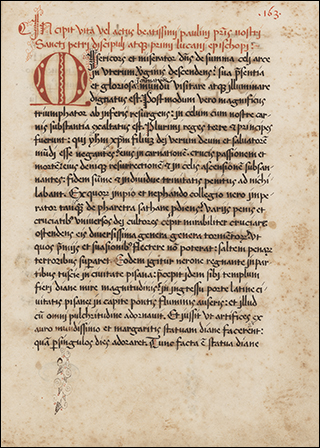 ·163·
Incipit vita vel actus beatissimi paulini pris nostri
Sancti petri discipuli atq; primi lucani epischopi:·
Misericors et miserator dns de summa celi arce
in uterum virginis descendens: sua presentia
et gloriosa mundum visitare atq; illuminare
dignatus est. Post modum vero magnificus
triumphator ab inferis resurgens: in celum cum nostre car-
nis substantia exaltatus est. Plurimi reges terre et principes
fuerunt: qui christum filium dei verum deum et salvatorem
mundi esse negantes: eius incarnationem crucis passionem et
mortem: eiusdemq; resurrectionem: in celos ascensionem subsan-
nantes: fidem summe et individue trinitatis penitus ad nichi
labant. Ex quorum impio et nephando collegio nero impe-
rator tamq; de pharetra sathane prodiens: variis penis et
cruciatibus universos dei cultores
ostendens eis diversissima genera tormentorum:
quos penis et suasionibus flectere non poterat: saltem penarum
terroribus superaret. Eodem igitur nerone regnante in par-
tibus tuscie in civitate pisana: precepit idem sibi templum
fieri diane mire magnitudinis: in ingressu porte latine ci-
vitatis pisane in capite pontis fluminis auseris: et illud
cum omni pulchritudine adornavit. Et iussit ut artifices ex
auro mundissimo et margaritis statuam diane facerent:
quam per singulos dies adoraret. Tunc facta est statua diane